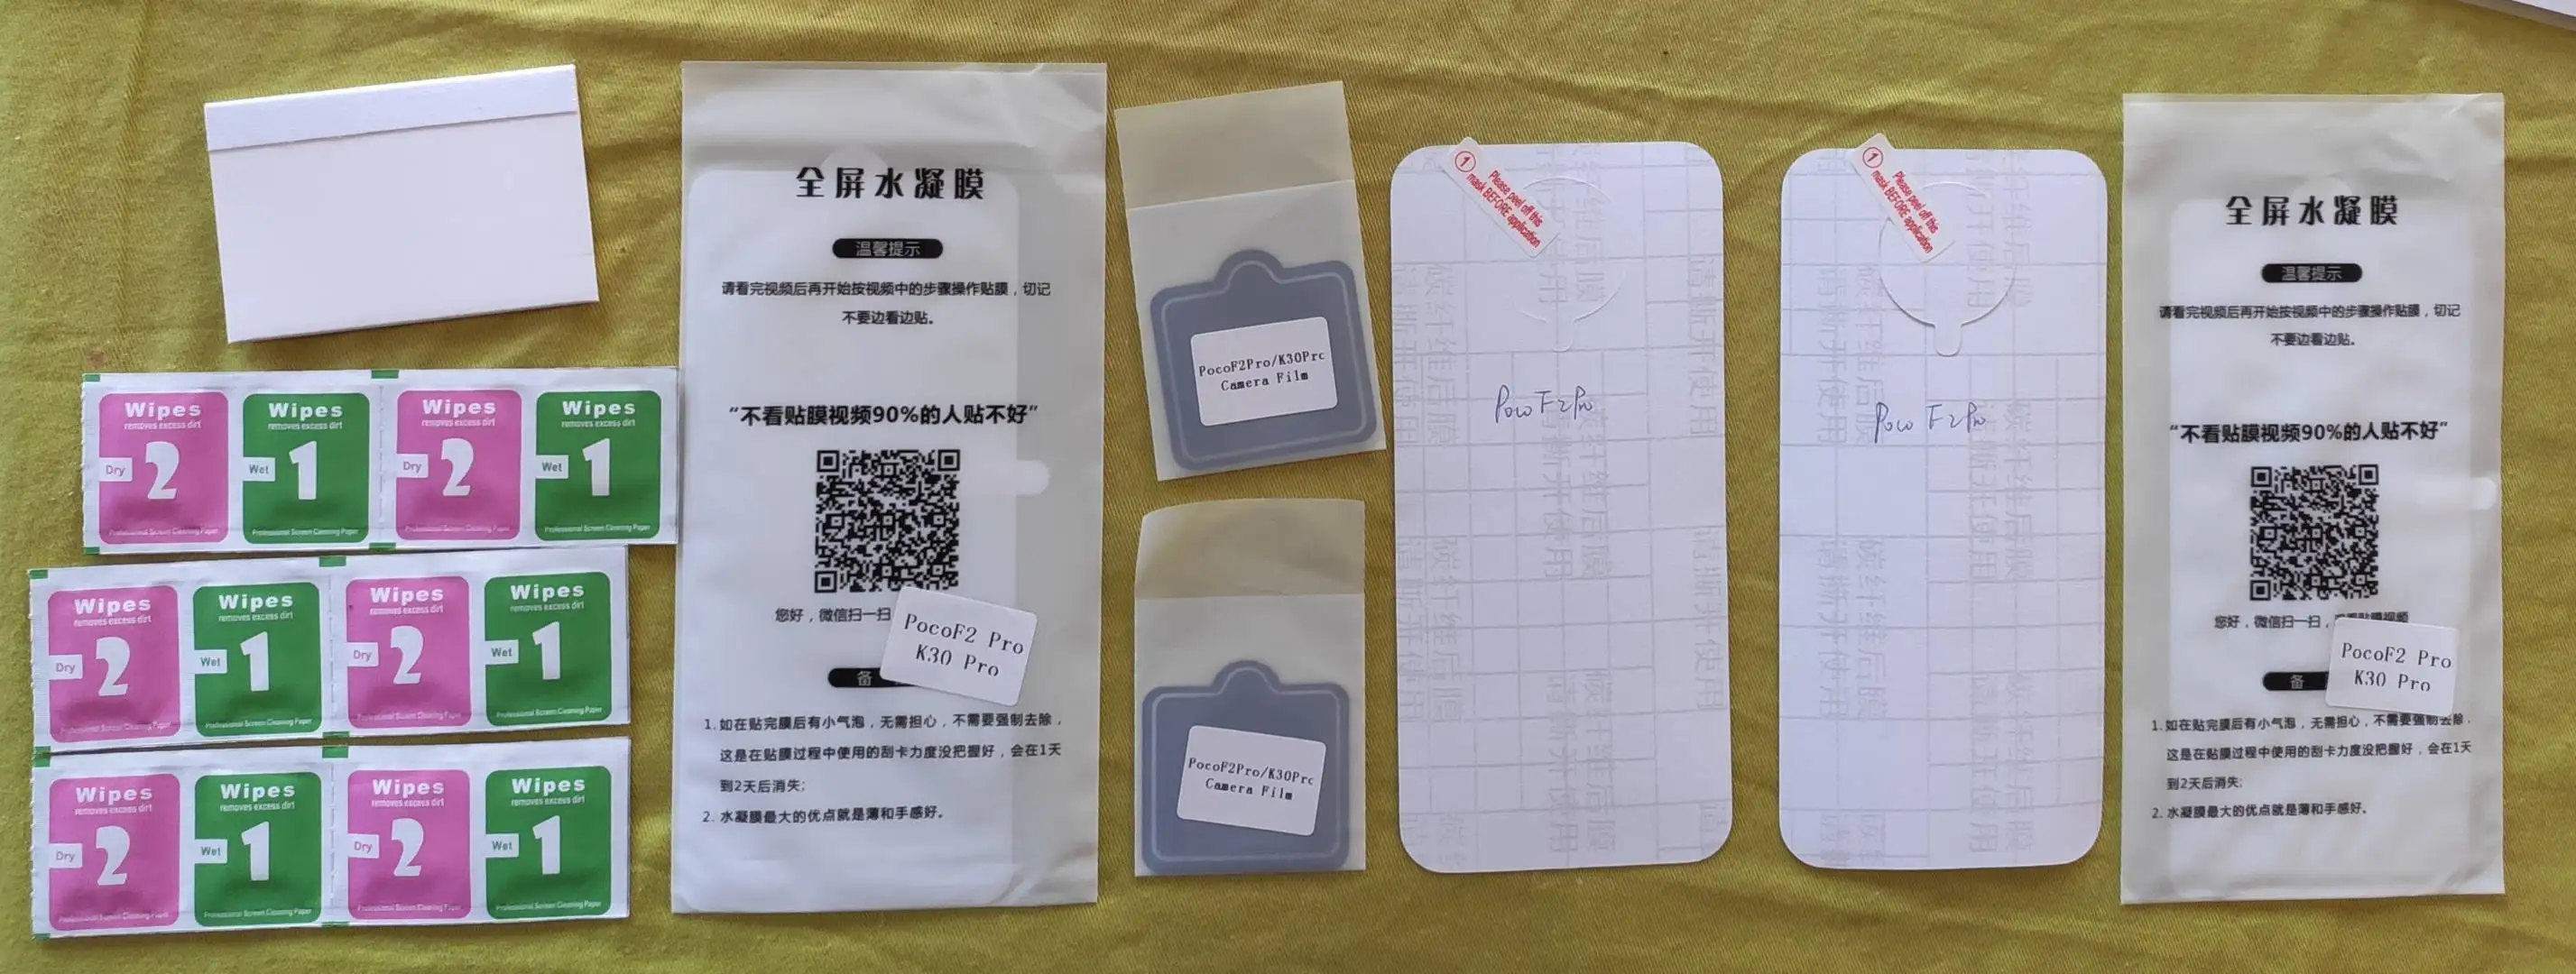 Wipes
removes excess dirt
Dry
2
Professional Screen Cleaning Paper
Wipes
removes excess dirt
Wet
1
Professional Screen Cleaning Paper
Wipes
removes excess dirt
Dry
2
Professional Screen Cleaning Paper
Wipes
removes excess dirt
Wet
1
Professional Screen Cleaning Paper
Wipes
removes excess dirt
Dry
2
Professional Screen Cleaning Paper
Wipes
removes excess dirt
Wet
1
Professional Screen Cleaning Paper
Wipes
removes excess dirt
Dry
2
Professional Screen Cleaning Paper
Wipes
removes excess dirt
Wet
1
Professional Screen Cleaning Paper
Wipes
removes excess dirt
Dry
2
Professional Screen Cleaning Paper
Wipes
removes excess dirt
Wet
1
Professional Screen Cleaning Paper
Wipes
removes excess dirt
Dry
2
Professional Screen Cleaning Paper
Wipes
removes excess dirt
Wet
1
Professional Screen Cleaning Paper
全屏水凝膜
温馨提示
请看完视频后再开始按视频中的步骤操作贴膜，切记
不要边看边贴。
“不看贴膜视频90%的人贴不好”
您好，微信扫一扫
PocoF2 Pro
K30 Pro
备
1. 如在贴完膜后有小气泡，无需担心，不需要强制去除，
这是在贴膜过程中使用的刮卡力度没把握好，会在1天
到2天后消失;
2. 水凝膜最大的优点就是薄和手感好。
PocoF2Pro/K30Prc
Camera Film
PocoF2Pro/K30Prc
Camera Film
1
Please peel off this
mask BEFORE application
Poco F2 Pro
碳纤维后膜
请撕开使用
1
Please peel off this
mask BEFORE application
Poco F2 Pro
碳纤维后膜
请撕开使用
全屏水凝膜
温馨提示
请看完视频后再开始按视频中的步骤操作贴膜，切记
不要边看边贴。
“不看贴膜视频90%的人贴不好”
您好，微信扫一扫，
PocoF2 Pro
K30 Pro
备
1. 如在贴完膜后有小气泡，无需担心，不需要强制去除，
这是在贴膜过程中使用的刮卡力度没把握好，会在1天
到2天后消失;
2. 水凝膜最大的优点就是薄和手感好。